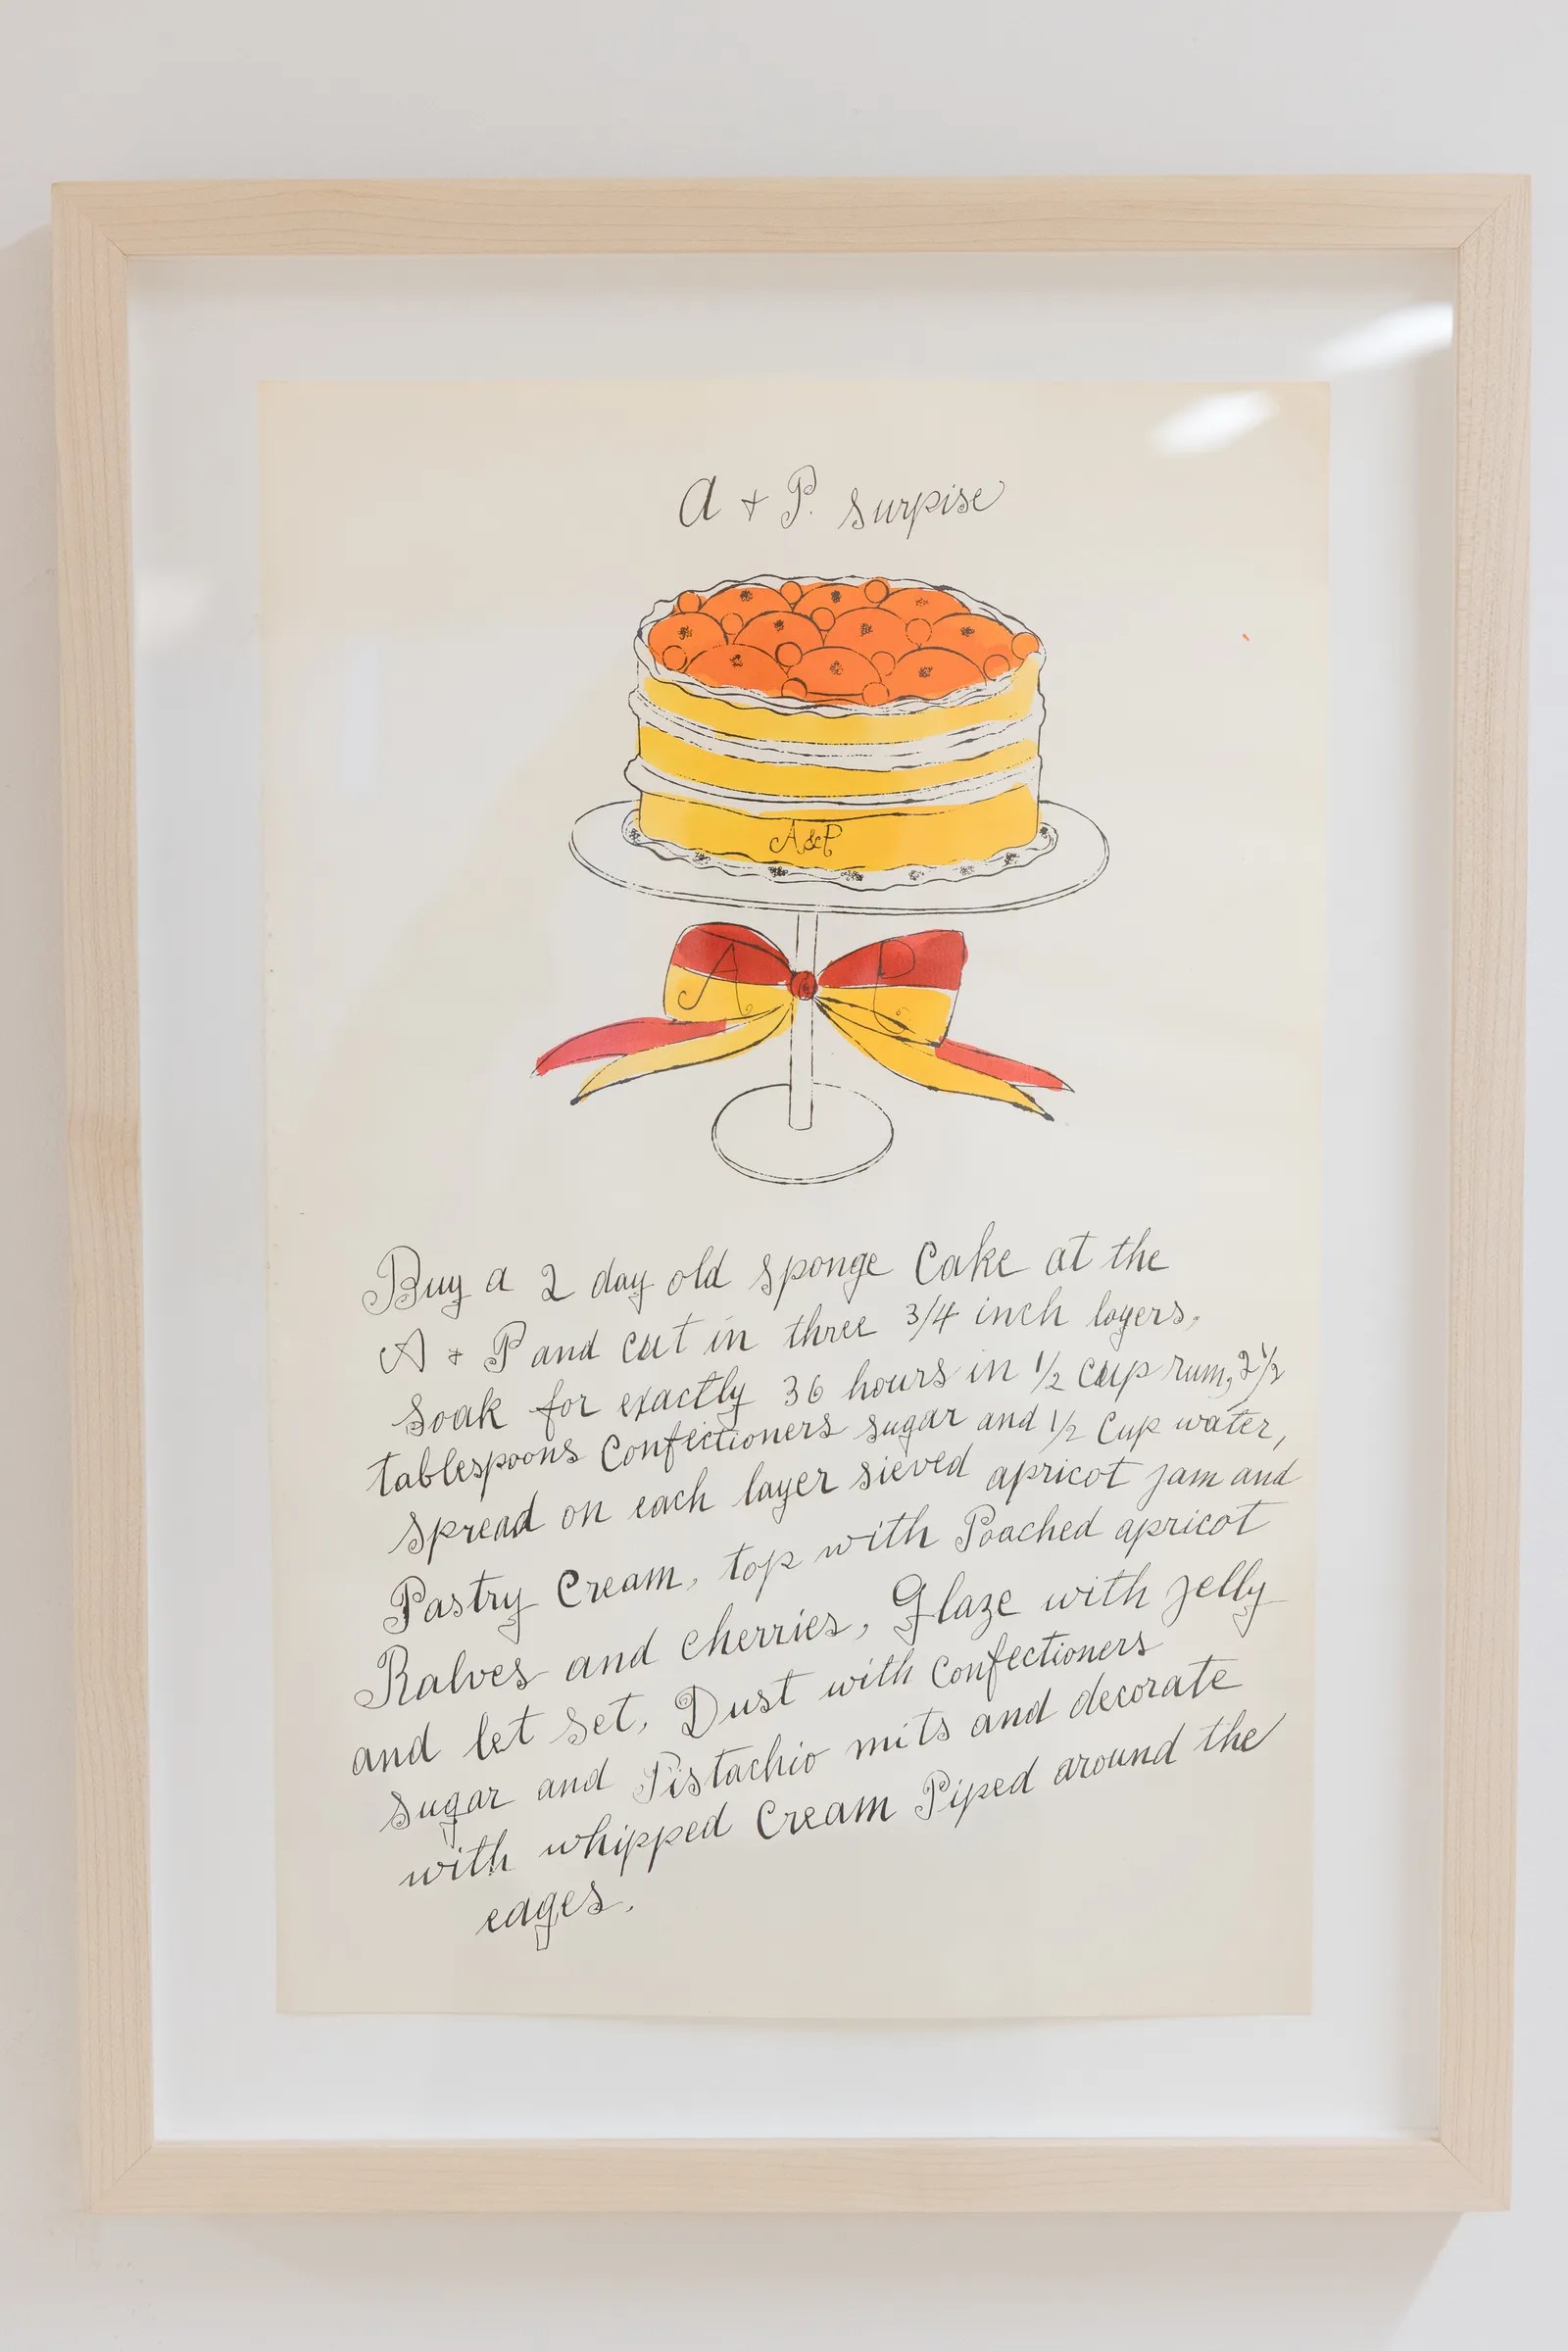 A + P. surpise
A&P
A P
Buy a 2 day old sponge Cake at the
A + P and cut in three 3/4 inch layers,
Soak for exactly 36 hours in 1/2 cup rum, 2 1/2
tablespoons Confectioners sugar and 1/2 Cup water,
spread on each layer sieved apricot jam and
Pastry Cream, top with Poached apricot
Ralves and cherries, Glaze with jelly
and let set, Dust with Confectioners
sugar and Pistachio mits and decorate
with whipped Cream Piped around the
edges.